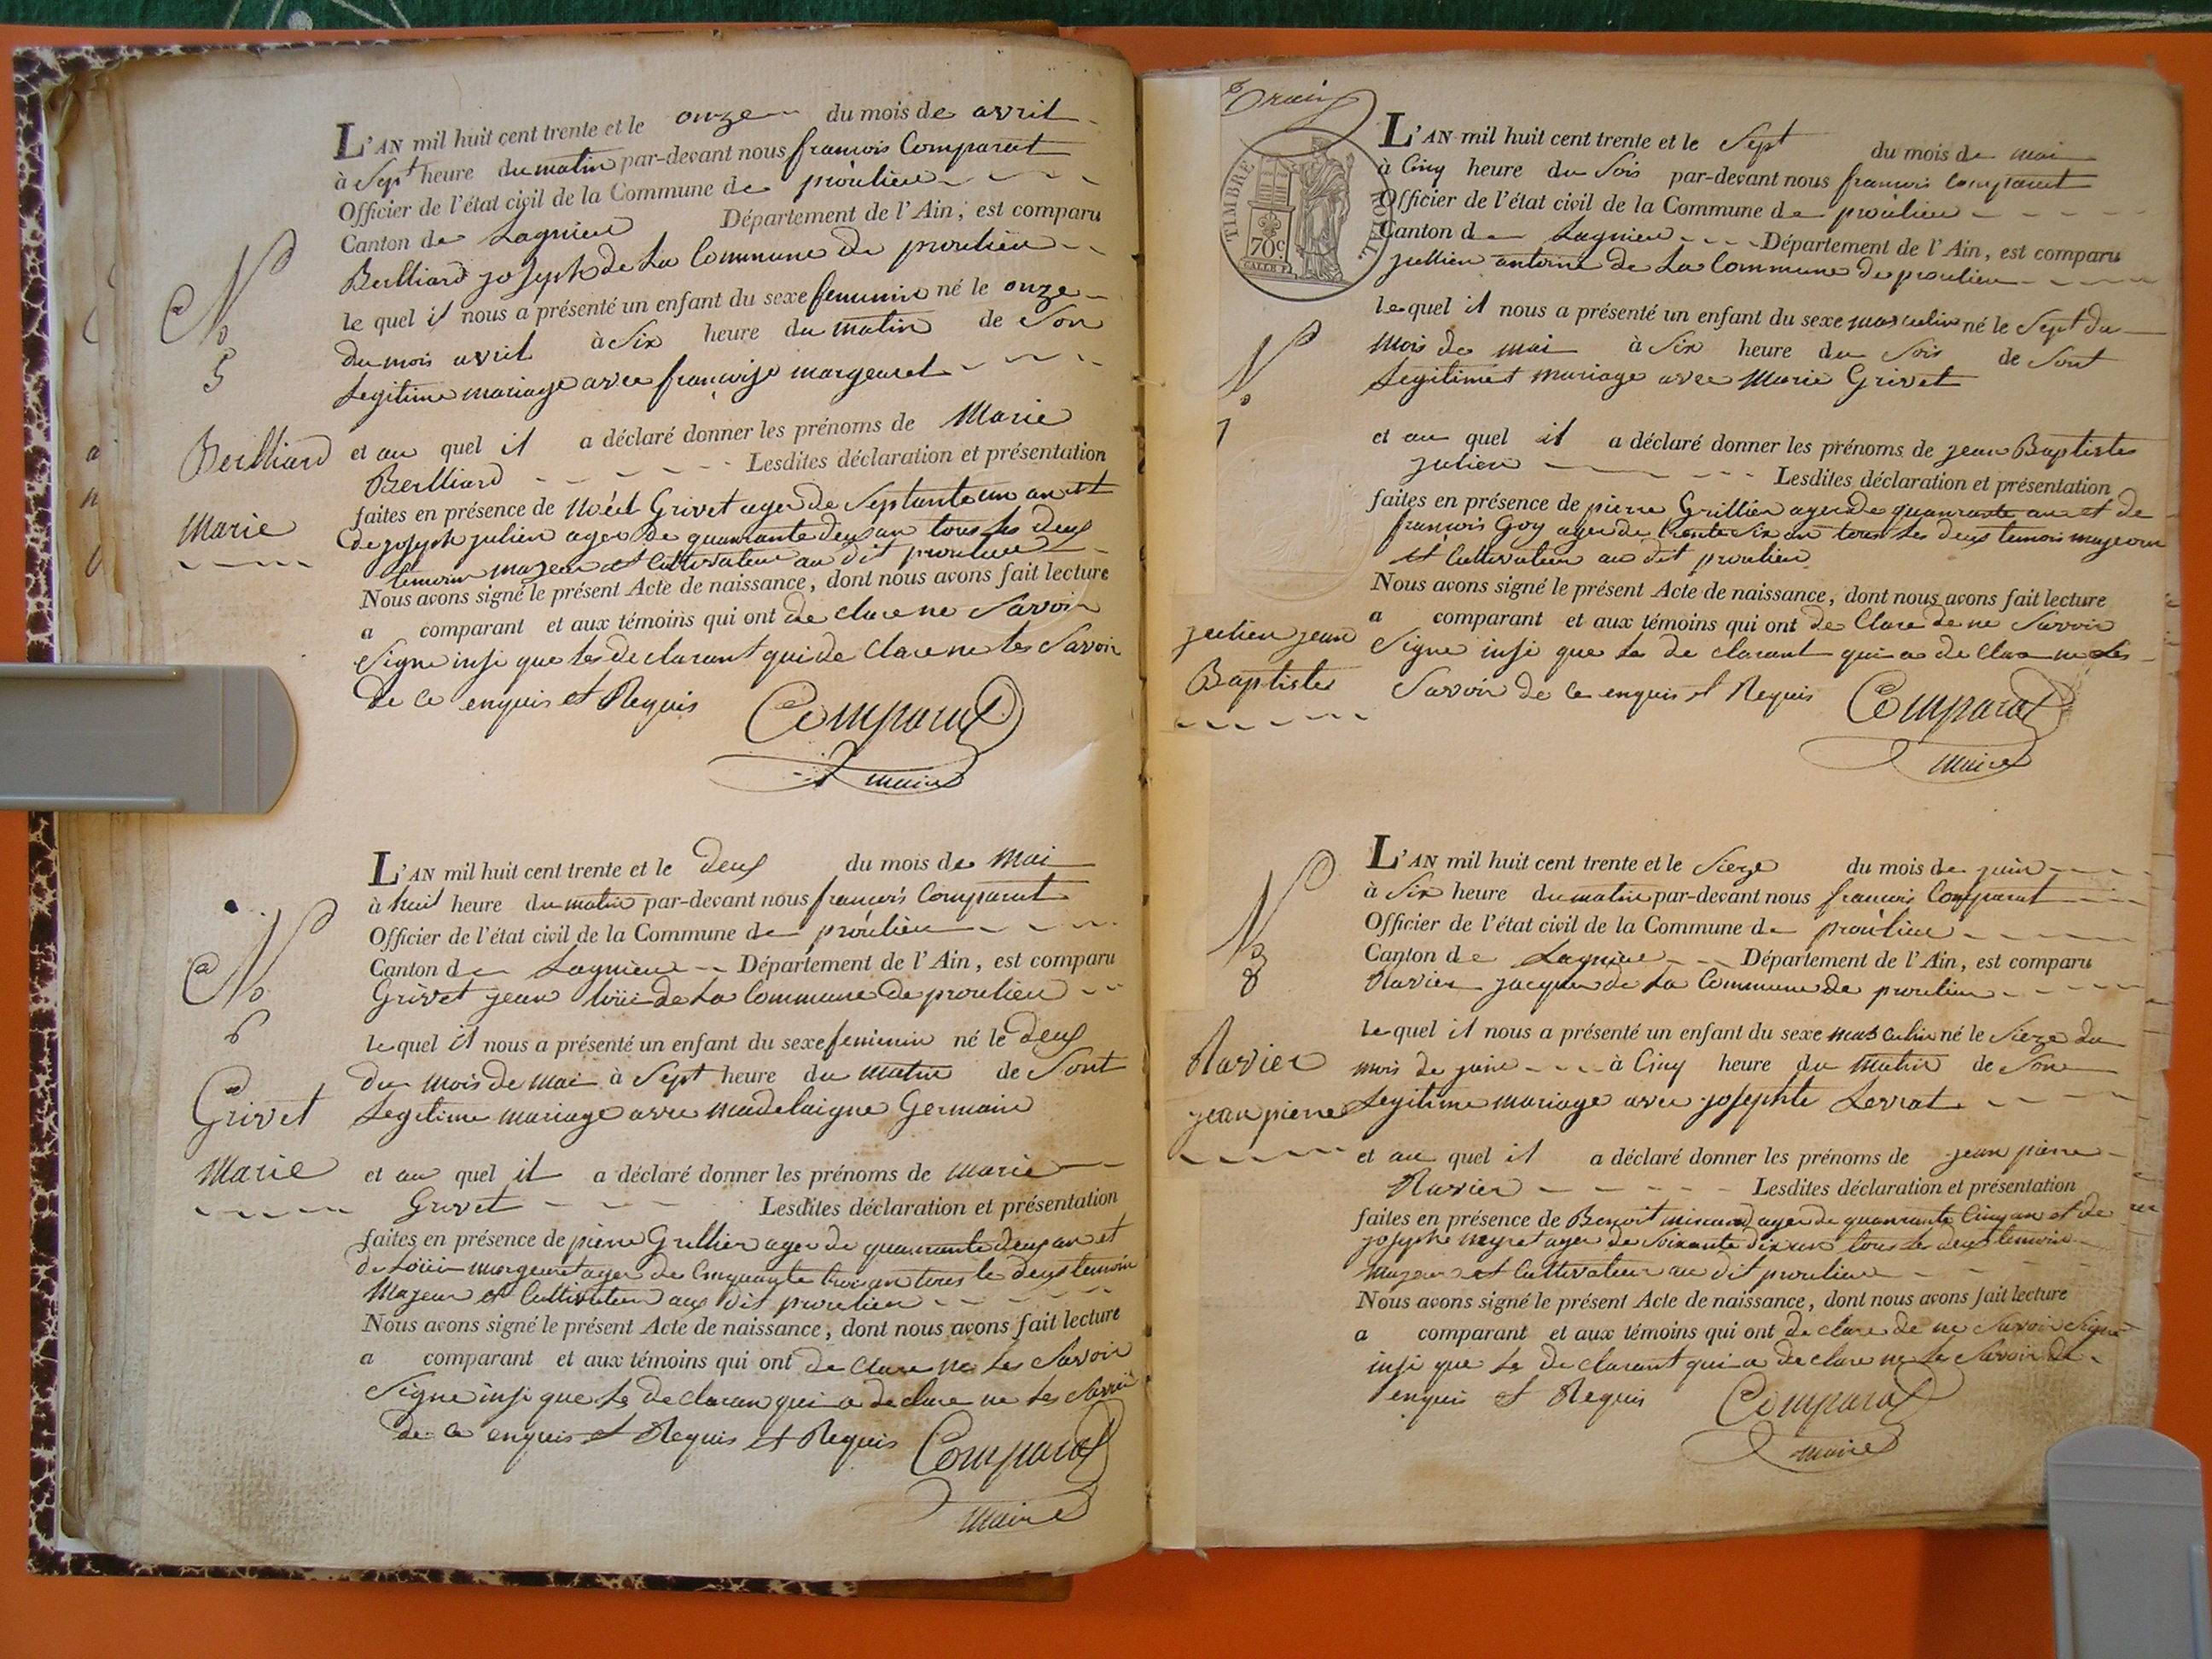 L'AN mil huit cent trente et le onze du mois de avril
à Sept heure du matin par-devant nous francois Comparat
Officier de l'état civil de la Commune de proulieu
Canton de Lagnieu Département de l'Ain, est comparu
Berlliard joseph de La Commune de proulieu
le quel il nous a présenté un enfant du sexe feminin né le onze
du mois avril à Six heure du matin de Son
Legitime mariage avec francoise margearet
et au quel il a déclaré donner les prénoms de Marie
Berlliard Lesdites déclaration et présentation
faites en présence de Noël Grivet ager de Septante un an et
de joseph julien ager de quamrante deus an tous les deus
temoin majeur et Cultivateur au dit proulieu
Nous avons signé le présent Acte de naissance, dont nous avons fait lecture
a comparant et aux témoins qui ont de clare ne Savoir
Signe insi que les de clarant qui de clare ne les Savoir
de ce enquis et Requis Comparat
maire
No
5
Berlliard
Marie
L'AN mil huit cent trente et le deus du mois de Mai
à huit heure du matin par-devant nous francois Comparat
Officier de l'état civil de la Commune de proulieu
Canton de Lagnieu Département de l'Ain, est comparu
Grivet jean loüi de La Commune de proulieu
le quel il nous a présenté un enfant du sexe feminin né le deus
du mois de mai à Sept heure du matin de Sont
Legitime mariage avec madelaigne Germain
et au quel il a déclaré donner les prénoms de Marie
Grivet Lesdites déclaration et présentation
faites en présence de pierre Grillier ager de quamrante deus an et
de Loüi margearet ager de Cinquante trois an tous le deus temoin
Majeur et Cultivateur aus dit proulieu
Nous avons signé le présent Acte de naissance, dont nous avons fait lecture
a comparant et aux témoins qui ont de clare ne les Savoir
Signe insi que le de claran qui a de clare ne les Savoir
de ce enquis et Requis et Requis Comparat
maire
No
6
Grivet
Marie
TIMBRE ROYAL
70c
L'AN mil huit cent trente et le Sept du mois de mai
à Cinq heure du Soir par-devant nous francois Comparat
Officier de l'état civil de la Commune de proulieu
Canton de Lagnieu Département de l'Ain, est comparu
jullien antoine de La Commune de proulieu
le quel il nous a présenté un enfant du sexe masculin né le Sept du
Mois de mai à Six heure du Soir de Sont
Legitimet mariage avec Marie Grivet
et au quel il a déclaré donner les prénoms de jean Baptiste
julien Lesdites déclaration et présentation
faites en présence de pierre Grillier ager de quamrante an et de
francois Goy ager de trente Six an tous les deus temois majeur
et Cultivateur au dit proulieu
Nous avons signé le présent Acte de naissance, dont nous avons fait lecture
a comparant et aux témoins qui ont de Clare de ne Savoir
Signe insi que Le de clarant qui a de clare ne Les
Savoir de ce enquis et Requis Comparat
maire
No
7
julien jean
Baptiste
L'AN mil huit cent trente et le Sieze du mois de juin
à Six heure du matin par-devant nous francois Comparat
Officier de l'état civil de la Commune de proulieu
Canton de Lagnieu Département de l'Ain, est comparu
Ravier jacque de La Commune de proulieu
le quel il nous a présenté un enfant du sexe masculin né le Sieze du
mois de juin à Cinq heure du Matin de Son
Legitime mariage avec josephte Levrat
et au quel il a déclaré donner les prénoms de jean pierre
Ravier Lesdites déclaration et présentation
faites en présence de Benoit ager de quamrante Cinq an et de
josephe ager de Soixante dix un tous les deus temoin
majeur et Cultivateur au dit proulieu
Nous avons signé le présent Acte de naissance, dont nous avons fait lecture
a comparant et aux témoins qui ont de clare de ne Savoir Signe
insi que Le de clarant qui a de clare ne Le Savoir de
enquis et Requis Comparat
maire
No
8
Ravier
jean pierre